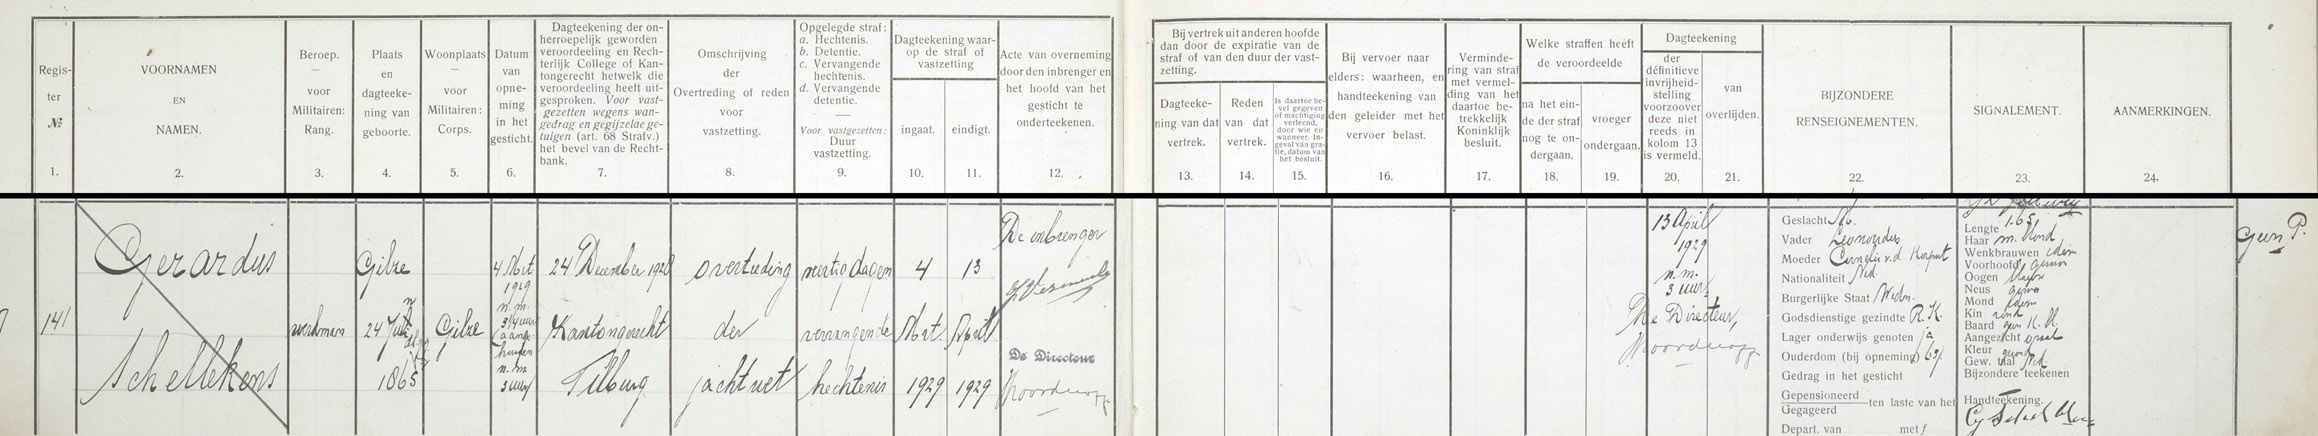 Regis-
ter
№
1.
VOORNAMEN
EN
NAMEN.
2.
Beroep.
—
voor
Militairen:
Rang.
3.
Plaats
en
dagteeke-
ning van
geboorte.
4.
Woonplaats
—
voor
Militairen:
Corps.
5.
Datum
van
opne-
ming
in het
gesticht.
6.
Dagteekening der on-
herroepelijk geworden
veroordeeling en Rech-
terlijk College of Kan-
tongerecht hetwelk die
veroordeeling heeft uit-
gesproken. Voor vast-
gezetten wegens wan-
gedrag en gegijzelde ge-
tuigen (art. 68 Strafv.)
het bevel van de Recht-
bank.
7.
Omschrijving
der
Overtreding of reden
voor
vastzetting.
8.
Opgelegde straf:
a. Hechtenis.
b. Detentie.
c. Vervangende
hechtenis.
d. Vervangende
detentie.
—
Voor vastgezetten:
Duur
vastzetting.
9.
Dagteekening waar-
op de straf of
vastzetting
ingaat.
10.
eindigt.
11.
Acte van overneming
door den inbrenger en
het hoofd van het
gesticht te
onderteekenen.
12.
Bij vertrek uit anderen hoofde
dan door de expiratie van de
straf of van den duur der vast-
zetting.
Dagteeke-
ning van dat
vertrek.
13.
Reden
van dat
vertrek.
14.
Is daartoe be-
vel gegeven
of machtiging
verleend,
door wie en
wanneer. In-
geval van gra-
tie, datum van
het besluit.
15.
Bij vervoer naar
elders: waarheen, en
handteekening van
den geleider met het
vervoer belast.
16.
Verminde-
ring van straf
met vermel-
ding van het
daartoe be-
trekkelijk
Koninklijk
besluit.
17.
Welke straffen heeft
de veroordeelde
na het ein-
de der straf
nog te on-
dergaan.
18.
vroeger
ondergaan.
19.
Dagteekening
der
définitieve
invrijheid-
stelling
voorzoover
deze niet
reeds in
kolom 13
is vermeld.
20.
van
overlijden.
21.
BIJZONDERE
RENSEIGNEMENTEN.
22.
SIGNALEMENT.
23.
AANMERKINGEN.
24.
141
Gerardus
Schellekens
werkman
Gilze
24 Juli
1865
Gilze
4 Mrt
1929
n.m.
3 uur
24 December 1928
Kantongerecht
Tilburg
overtreding
der
jachtwet
veertig dagen
vervangende
hechtenis
4
Mrt.
1929
13
April
1929
De inbrenger
De Directeur
13 April
1929
n.m.
3 uur
De Directeur,
Geslacht M.
Vader Leonardus
Moeder Cornelia v.d. Korput
Nationaliteit Ned.
Burgerlijke Staat Wedn.
Godsdienstige gezindte R.K.
Lager onderwijs genoten ja
Ouderdom (bij opneming) 63 j.
Gedrag in het gesticht
Gepensioneerd
Gegageerd
ten laste van het
Depart. van met ƒ
Lengte 1.65
Haar m. blond
Wenkbrauwen idem
Voorhoofd gewoon
Oogen blauw
Neus gewoon
Mond klein
Kin rond
Baard geen K.
Aangezicht ovaal
Kleur gezond
Gew. taal Ned.
Bijzondere teekenen
Handteekening.
Geen P.